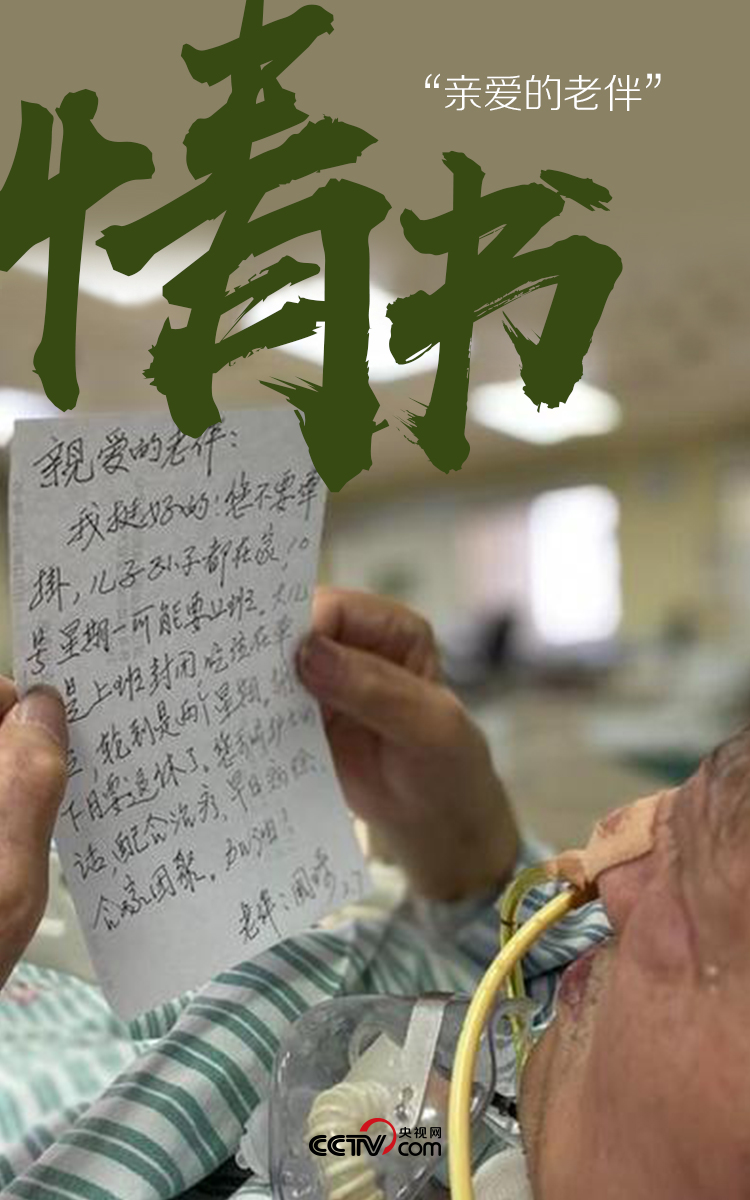 情书
“亲爱的老伴”
親爱的老伴：
我挺好的！您不要牵
掛，儿子孙子都在家，10
号星期一可能要上班。大儿
是上班封闭，吃住在单
轮到是两个星期。
下月要退休了。您
话，配合治疗，早日
合家团聚。加油！
老伴：国
2.7
CCTV.com 央视网